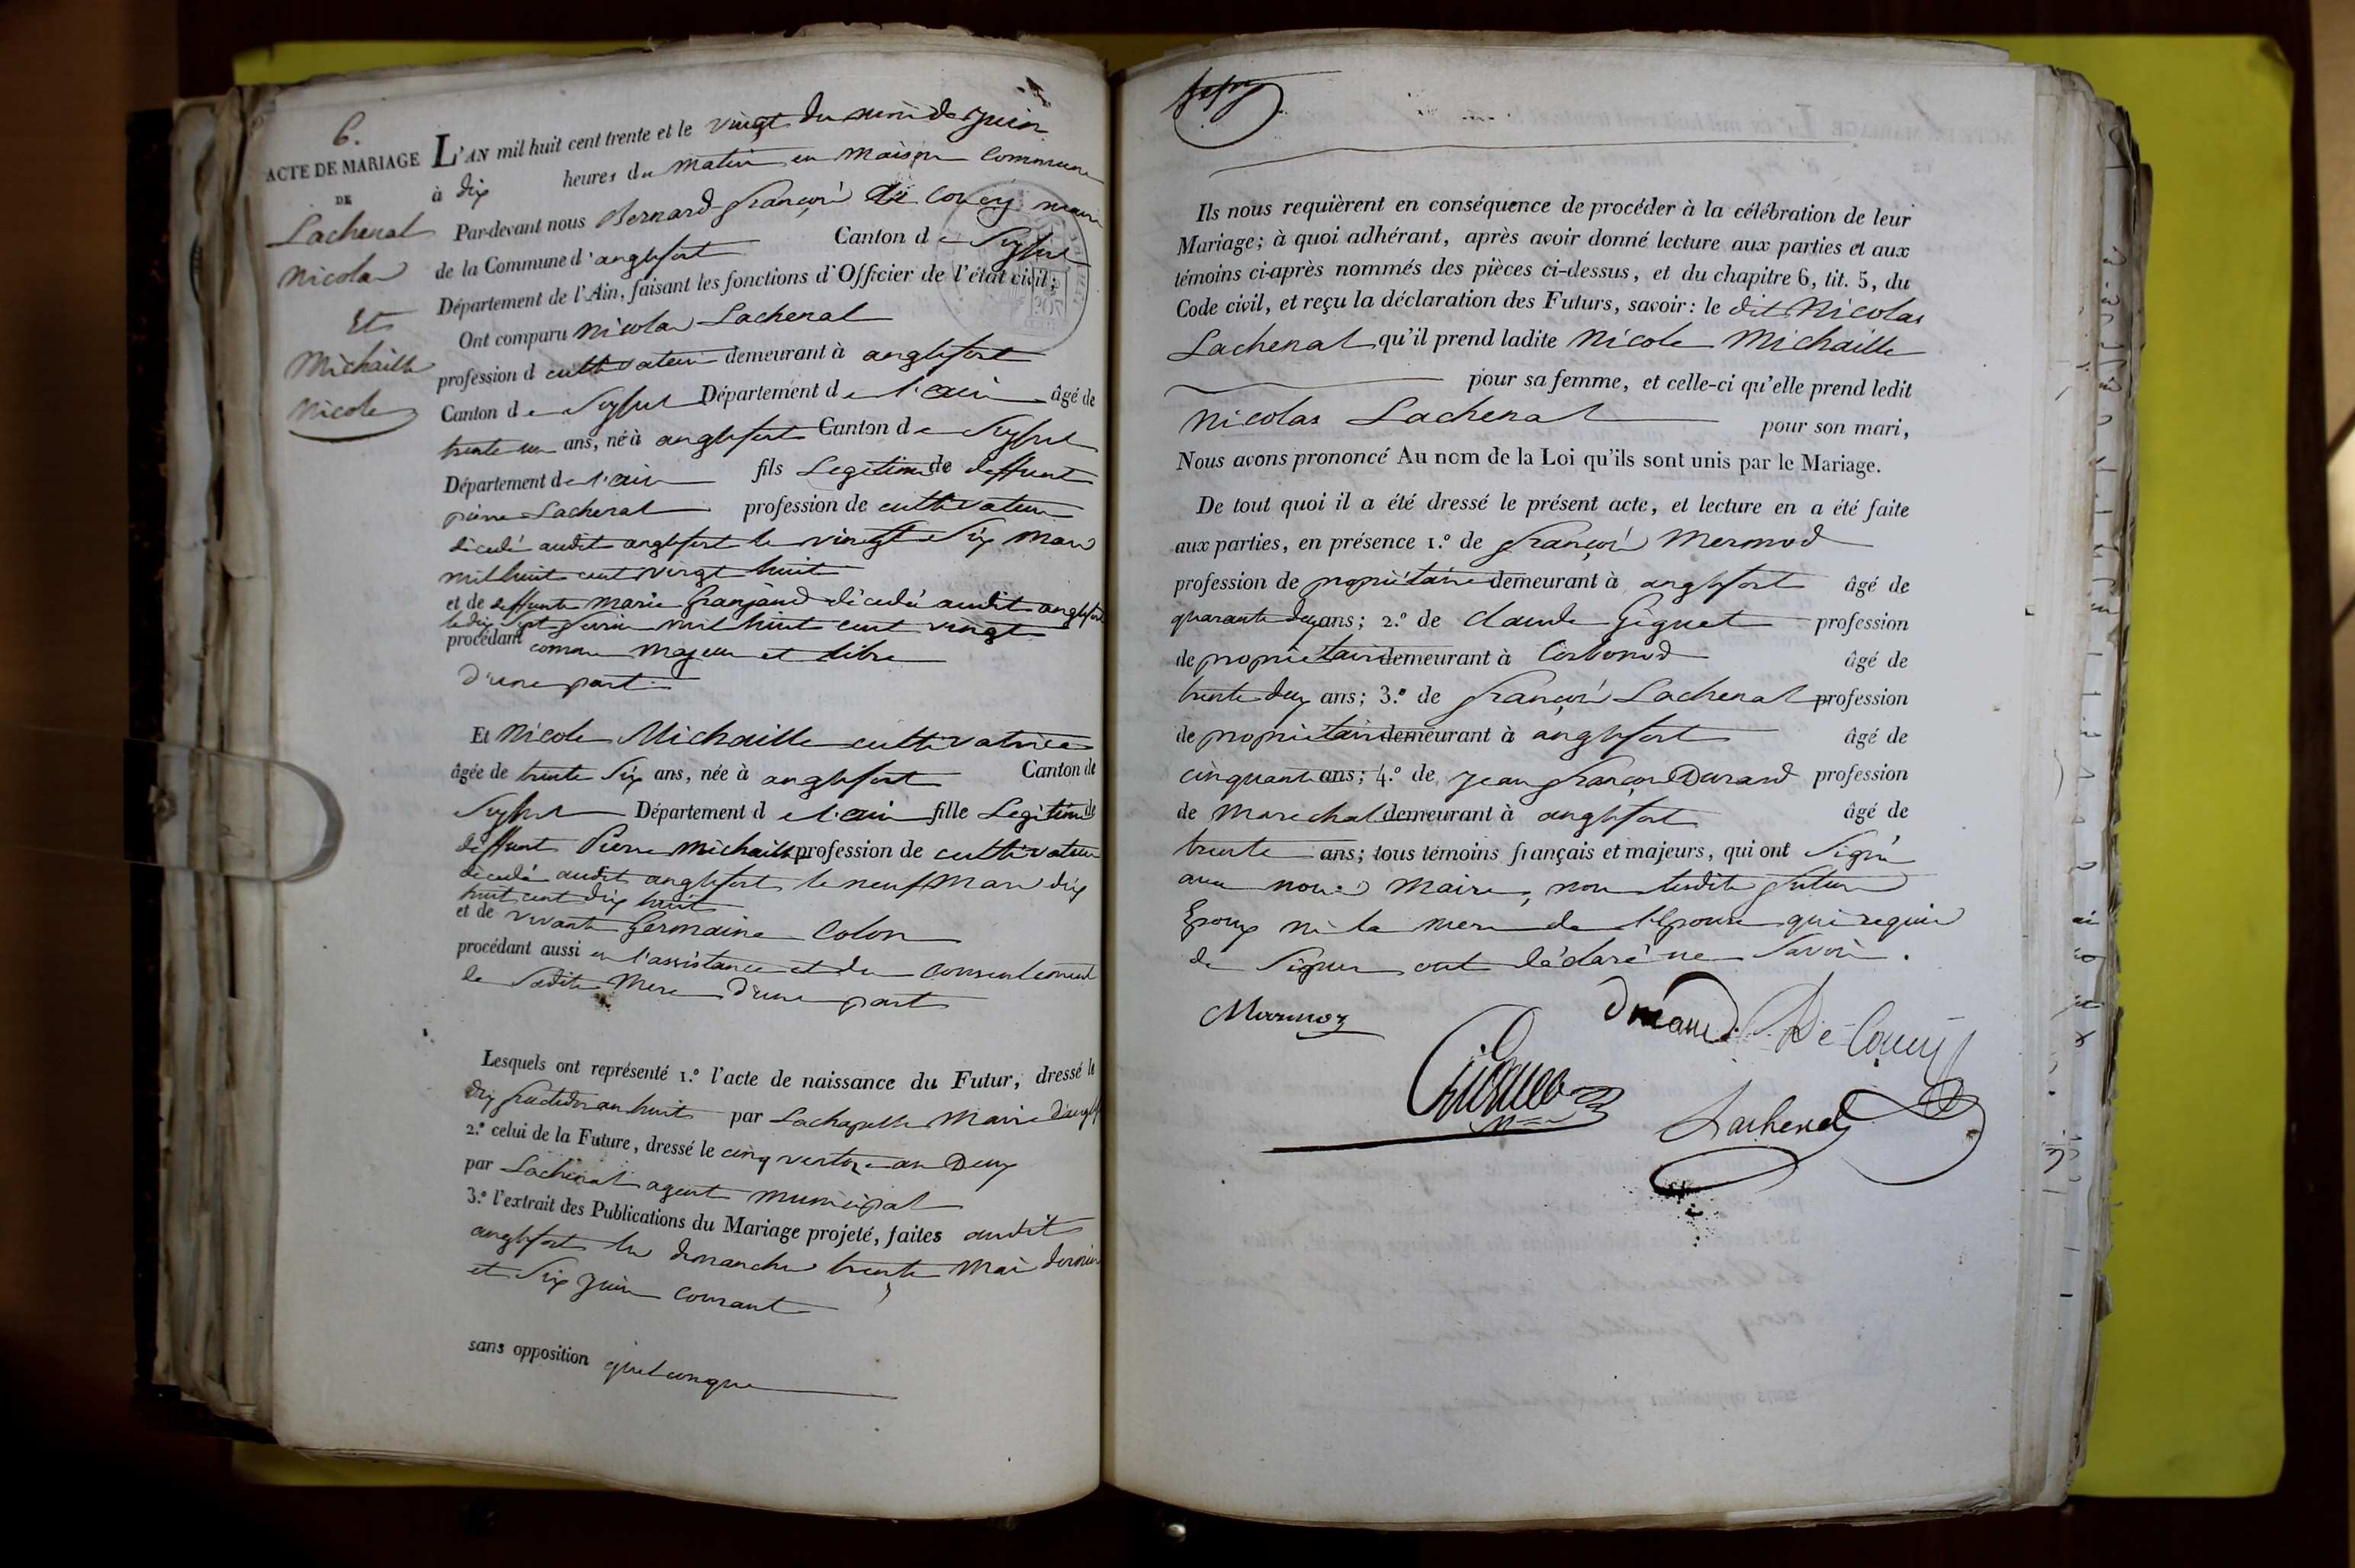 6.
ACTE DE MARIAGE
DE
Lachenal
Nicolas
Et
Michaille
Nicole
L'AN mil huit cent trente et le vingt du mois de juin
à dix heures du matin en maison commune
Par-devant nous Bernard françois de Coucy maire
de la Commune d'anglefort Canton de Seyssel
Département de l'Ain, faisant les fonctions d'Officier de l'état civil;
Ont comparu Nicolas Lachenal
profession d cultivateur demeurant à anglefort
Canton de Seyssel Département de l'ain âgé de
trente un ans, né à anglefort Canton de Seyssel
Département de l'ain fils Legitime de deffunt
pierre Lachenal profession de cultivateur
décédé audit anglefort le vingt Six Mars
mil huit cent vingt huit
et de deffunte Marie Granjand décédée audit anglefort
le dix Sept Fevrier mil huit cent vingt
procédant comme Majeur et libre
d'une part
Et Nicole Michaille cultivatrice
âgée de trente Six ans, née à anglefort Canton de
Seyssel Département de l'ain fille Legitime de
deffunt Pierre Michaille profession de cultivateur
décédé audit anglefort le neuf Mars dix
huit cent dix huit
et de vivante Germaine Colon
procédant aussi en l'assistance et du consentement
de Sadite Mere d'une part
Lesquels ont représenté 1.º l'acte de naissance du Futur, dressé le
dix fructidor an huit par Lachapelle Maire d'anglef
2.º celui de la Future, dressé le cinq ventoze an Deux
par Lachenal agent municipal
3.º l'extrait des Publications du Mariage projeté, faites audit
anglefort les dimanches trente Mai dernier
et Six Juin courant
sans opposition quelconque
Ils nous requièrent en conséquence de procéder à la célébration de leur
Mariage; à quoi adhérant, après avoir donné lecture aux parties et aux
témoins ci-après nommés des pièces ci-dessus, et du chapitre 6, tit. 5, du
Code civil, et reçu la déclaration des Futurs, savoir: le dit Nicolas
Lachenal qu'il prend ladite Nicole Michaille
pour sa femme, et celle-ci qu'elle prend ledit
Nicolas Lachenal pour son mari,
Nous avons prononcé Au nom de la Loi qu'ils sont unis par le Mariage.
De tout quoi il a été dressé le présent acte, et lecture en a été faite
aux parties, en présence 1.º de françois Mermod
profession de propriétaire demeurant à anglefort âgé de
quarante deux ans; 2.º de Claude Giguet profession
de propriétaire demeurant à Corbonod âgé de
trente deux ans; 3.º de françois Lachenal profession
de propriétaire demeurant à anglefort âgé de
cinquante ans; 4.º de Jean françois Durand profession
de Marechal demeurant à anglefort âgé de
trente ans; tous témoins français et majeurs, qui ont Signé
avec nous Maire, non lesdits futurs
Epoux ni la mere de l'Epouse qui requis
de Signer ont déclaré ne Savoir.
Mermoz
Durand
De Coucy
Giguet
Lachenal